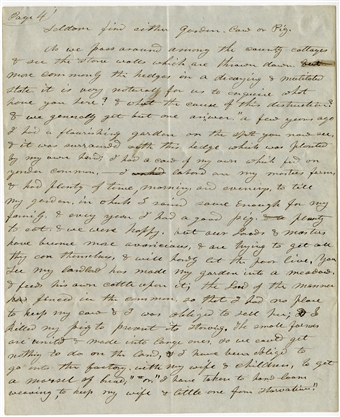 Page 4
Seldom find either Garden. Cow or Pig.
As we pass around among the county cottages
& see the stone walls which are thrown down but
more commonly the hedges in a decaying & mutilated
state it is very natural for us to enquire what
have you here? & what the cause of this destruction?
& we generally get but one answer "a few years ago
I had a flourishing garden on the spot you now see,
& it was surrounded with this hedge which was planted
by my own hand. I had a cow of my own which fed on
yonder common. — I labored on my masters farm
& had plenty of time, morning and evenings to till
my garden, in which I raised sauce enough for my
family, & every year I had a good pig. — a plenty
to eat. & we were happy. but our Lords & Masters
have become more avaricious, & are trying to get all
they can themselves, & will hardly let the poor live, You
see my landlord has made my garden into a meadow,
& feeds his own cattle upon it; the Lord of the mannor
has fenced in the common so that I had no place
to keep my cow & I was obliged to sell her; & I
killed my pig to prevent its starving. The small farms
are united & made into large ones. so we could get
nothing to do on the land, & I have been obliged to
go into the factory, with my wife & children, to get
a morsel of bread," "or," I have taken to hand-loom
weaving to keep my wife & little ones from starvation."